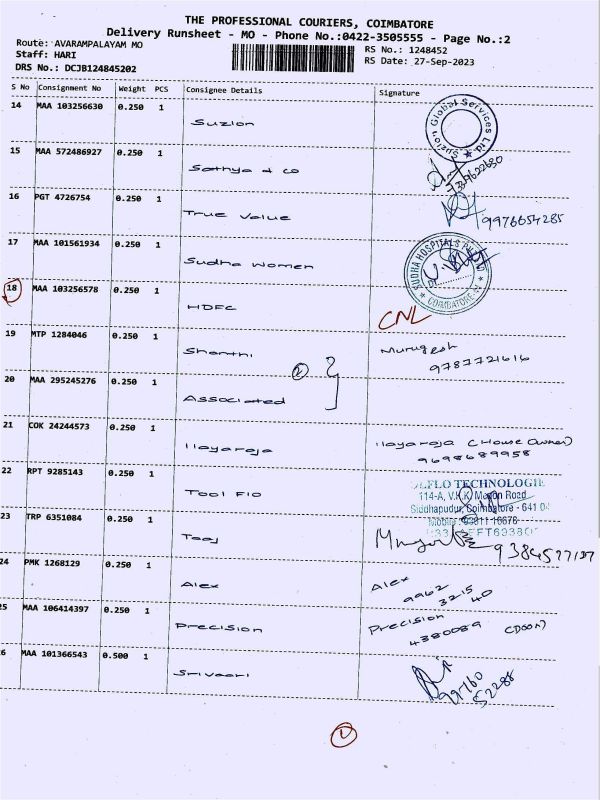 THE PROFESSIONAL COURIERS, COIMBATORE
Delivery Runsheet - MO - Phone No.:0422-3505555 - Page No.:2
Route: AVARAMPALAYAM MO
RS No.: 1248452
Staff: HARI
RS Date: 27-Sep-2023
DRS No.: DCJB124845202
S No Consignment No Weight PCS Consignee Details Signature
14 MAA 103256630 0.250 1
Suzlon
Suzlon Global Services Ltd
15 MAA 572486927 0.250 1
Sathya & co
16 PGT 4726754 0.250 1
True Value
9976654285
17 MAA 101561934 0.250 1
Sudha Women
SUDHA HOSPITALS
COIMBATORE
18 MAA 103256578 0.250 1
HDFC
CNL
19 MTP 1284046 0.250 1
Shanthi
Murugesh
9787721616
20 MAA 295245276 0.250 1
Associated
2
21 COK 24244573 0.250 1
Ilayaraja
Ilayaraja (House Owner)
9698689958
22 RPT 9285143 0.250 1
Tool Flo
FLO TECHNOLOGIE
114-A, V.K.K Menon Road
Siddhapudur, Coimbatore - 641 04
Mobile: 93811 16676
23 TRP 6351084 0.250 1
Taaj
24 PMK 1268129 0.250 1
Alex
Alex
9962
3215
40
25 MAA 106414397 0.250 1
Precision
Precision
4380089
26 MAA 101366543 0.500 1
Srivaari
99760
52288
1